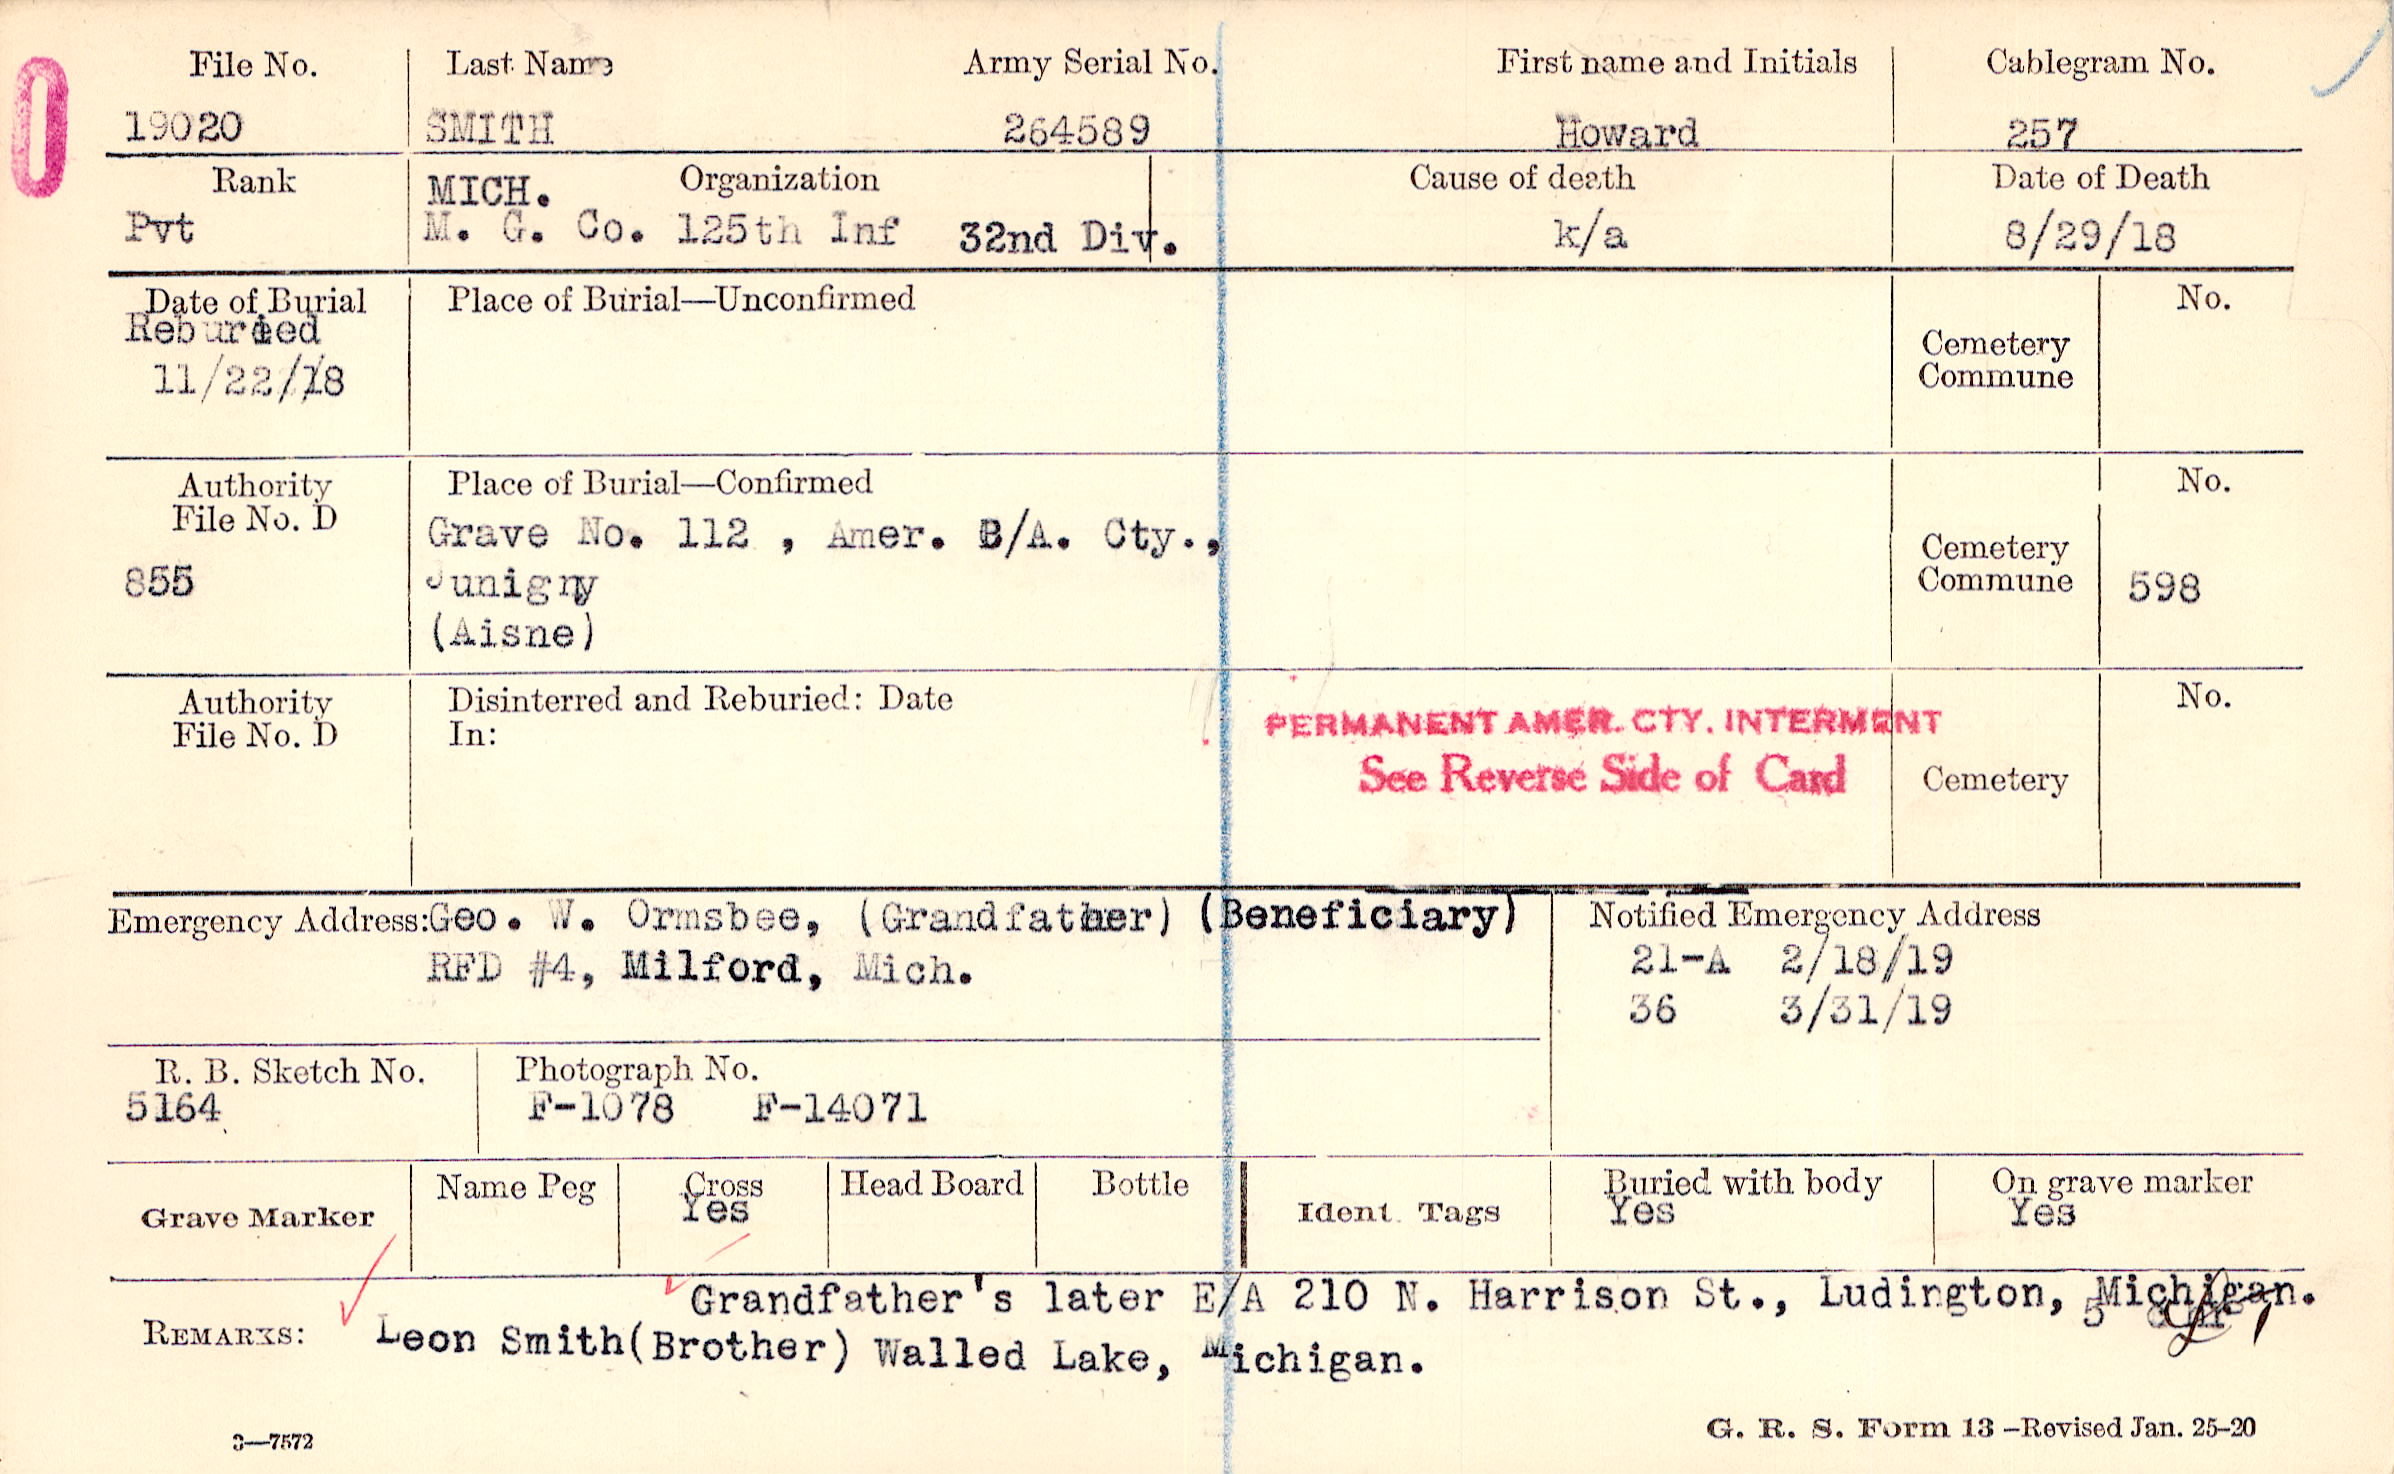 File No. Last Name Army Serial No. First name and Initials Cablegram No.
19020 SMITH 264589 Howard 257
Rank MICH. Organization Cause of death Date of Death
Pvt M. G. Co. 125th Inf 32nd Div. k/a 8/29/18
Date of Burial Place of Burial—Unconfirmed No.
Reburied
Cemetery
11/22/18
Commune
Authority Place of Burial—Confirmed No.
File No. D
Grave No. 112 , Amer. B/A. Cty.,
Cemetery
855 Junigny Commune 598
(Aisne)
Authority Disinterred and Reburied: Date No.
File No. D In:
PERMANENT AMER. CTY. INTERMENT
See Reverse Side of Card Cemetery
Emergency Address: Geo. W. Ormsbee, (Grandfather) (Beneficiary) Notified Emergency Address
RFD #4, Milford, Mich. 21-A 2/18/19
36 3/31/19
R. B. Sketch No. Photograph No.
5164 F-1078 F-14071
Grave Marker Name Peg Cross Head Board Bottle Ident. Tags Buried with body On grave marker
Yes Yes Yes
Grandfather's later E/A 210 N. Harrison St., Ludington, Michigan.
REMARKS: Leon Smith(Brother) Walled Lake, Michigan.
3—7572 G. R. S. Form 13 —Revised Jan. 25-20